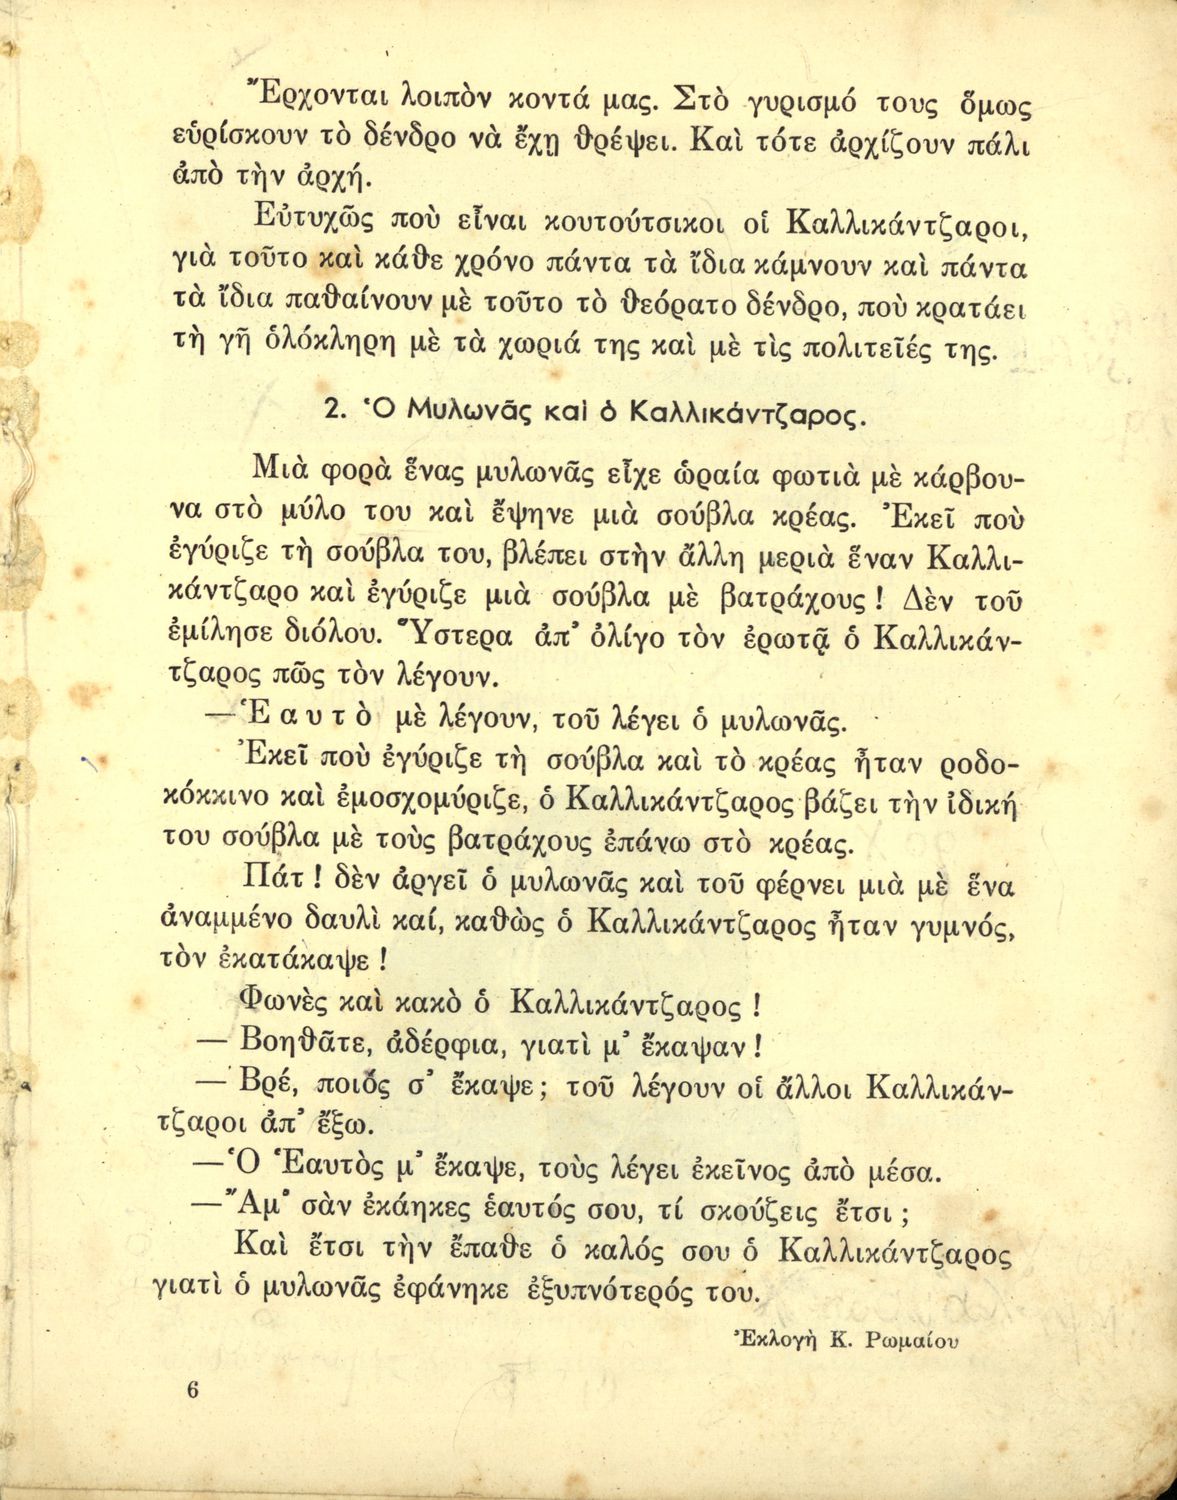 Ἔρχονται λοιπὸν κοντά μας. Στὸ γυρισμό τους ὅμως
εὑρίσκουν τὸ δένδρο νὰ ἔχῃ θρέψει. Καὶ τότε ἀρχίζουν πάλι
ἀπὸ τὴν ἀρχή.
Εὐτυχῶς ποὺ εἶναι κουτούτσικοι οἱ Καλλικάντζαροι,
γιὰ τοῦτο καὶ κάθε χρόνο πάντα τὰ ἴδια κάμνουν καὶ πάντα
τὰ ἴδια παθαίνουν μὲ τοῦτο τὸ θεόρατο δένδρο, ποὺ κρατάει
τὴ γῆ ὁλόκληρη μὲ τὰ χωριά της καὶ μὲ τὶς πολιτεῖές της.
2. Ὁ Μυλωνᾶς καὶ ὁ Καλλικάντζαρος.
Μιὰ φορὰ ἕνας μυλωνᾶς εἶχε ὡραία φωτιὰ μὲ κάρβου-
να στὸ μύλο του καὶ ἔψηνε μιὰ σούβλα κρέας. Ἐκεῖ ποὺ
ἐγύριζε τὴ σούβλα του, βλέπει στὴν ἄλλη μεριὰ ἕναν Καλλι-
κάντζαρο καὶ ἐγύριζε μιὰ σούβλα μὲ βατράχους ! Δὲν τοῦ
ἐμίλησε διόλου. Ὕστερα ἀπ' ὀλίγο τὸν ἐρωτᾷ ὁ Καλλικάν-
τζαρος πῶς τὸν λέγουν.
—Ἑ α υ τ ὸ μὲ λέγουν, τοῦ λέγει ὁ μυλωνᾶς.
Ἐκεῖ ποὺ ἐγύριζε τὴ σούβλα καὶ τὸ κρέας ἦταν ροδο-
κόκκινο καὶ ἐμοσχομύριζε, ὁ Καλλικάντζαρος βάζει τὴν ἰδική
του σούβλα μὲ τοὺς βατράχους ἐπάνω στὸ κρέας.
Πάτ ! δὲν ἀργεῖ ὁ μυλωνᾶς καὶ τοῦ φέρνει μιὰ μὲ ἕνα
ἀναμμένο δαυλὶ καί, καθὼς ὁ Καλλικάντζαρος ἦταν γυμνός,
τὸν ἐκατάκαψε !
Φωνὲς καὶ κακὸ ὁ Καλλικάντζαρος !
— Βοηθᾶτε, ἀδέρφια, γιατὶ μ' ἔκαψαν !
— Βρέ, ποιὸς σ' ἔκαψε ; τοῦ λέγουν οἱ ἄλλοι Καλλικάν-
τζαροι ἀπ' ἔξω.
—Ὁ Ἑαυτὸς μ' ἔκαψε, τοὺς λέγει ἐκεῖνος ἀπὸ μέσα.
—Ἄμ' σὰν ἐκάηκες ἑαυτός σου, τί σκούζεις ἔτσι ;
Καὶ ἔτσι τὴν ἔπαθε ὁ καλός σου ὁ Καλλικάντζαρος
γιατὶ ὁ μυλωνᾶς ἐφάνηκε ἐξυπνότερός του.
Ἐκλογὴ Κ. Ρωμαίου
6